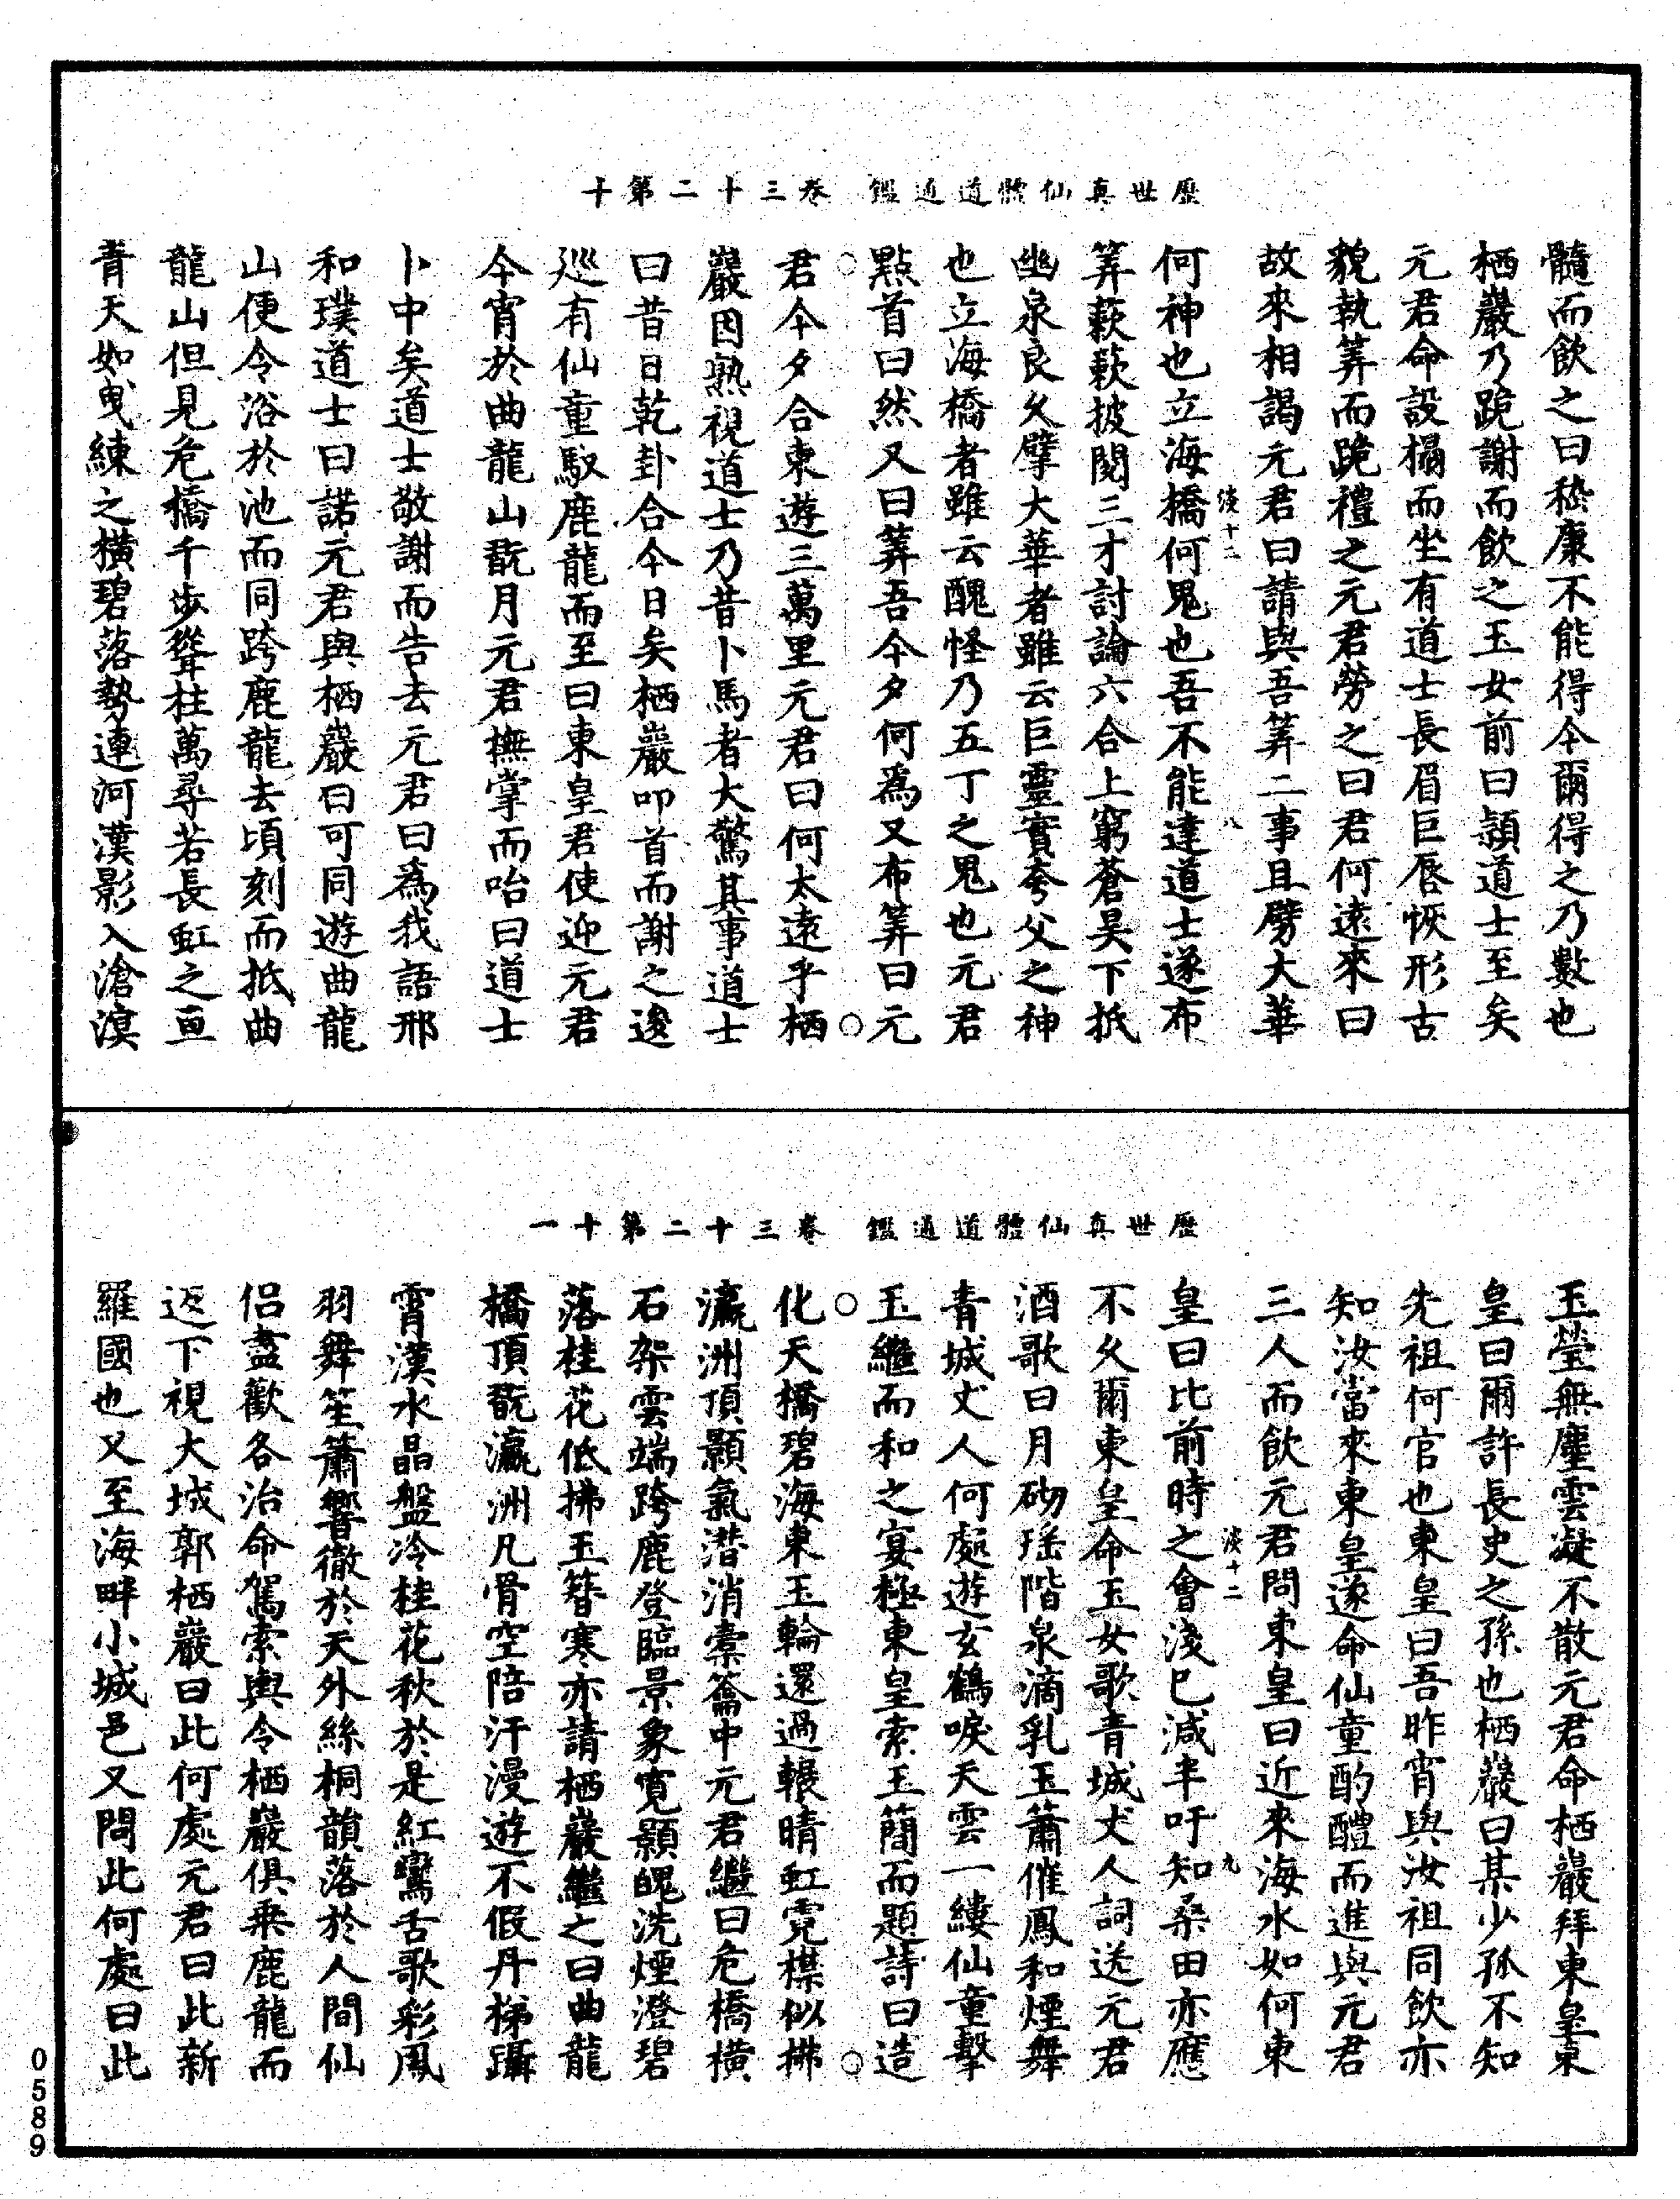 歷世真仙體道通鑑　卷三十二第十
髓而飲之曰嵇康不能得今爾得之乃數也
栖巖乃跪謝而飲之玉女前曰潁道士至矣
元君命設榻而坐有道士長眉巨唇恢形古
貌執筭而跪禮之元君勞之曰君何遠來曰
故來相謁元君曰請與吾筭二事且劈大華
何神也立海橋何鬼也吾不能達道士遂布
淡十二
八
筭蔌蔌披閱三才討論六合上窮蒼昊下抵
幽泉良久擘大華者雖云巨靈實夸父之神
也立海橋者雖云醜怪乃五丁之鬼也元君
點首曰然又曰筭吾今夕何為又布筭曰元
君今夕合東遊三萬里元君曰何太遠乎栖
巖因熟視道士乃昔卜馬者大驚其事道士
曰昔日乾卦合今日矣栖巖叩首而謝之逡
巡有仙童馭鹿龍而至曰東皇君使迎元君
今宵於曲龍山翫月元君撫掌而咍曰道士
卜中矣道士敬謝而告去元君曰為我語邢
和璞道士曰諾元君與栖巖曰可同遊曲龍
山便令浴於池而同跨鹿龍去頃刻而抵曲
龍山但見危橋千步聳柱萬尋若長虹之亘
青天如曳練之橫碧落勢連河漢影入滄溟
歷世真仙體道通鑑　卷三十二第十一
玉瑩無塵雲凝不散元君命栖巖拜東皇東
皇曰爾許長史之孫也栖巖曰某少孤不知
先祖何官也東皇曰吾昨宵與汝祖同飲亦
知汝當來東皇遂命仙童酌醴而進與元君
三人而飲元君問東皇曰近來海水如何東
皇曰比前時之會淺已減半吁知桑田亦應
淡十二
九
不久爾東皇命玉女歌青城丈人詞送元君
酒歌曰月砌瑶階泉滴乳玉簫催鳳和煙舞
青城丈人何處遊玄鶴唳天雲一縷仙童擊
玉繼而和之宴極東皇索玉簡而題詩曰造
化天橋碧海東玉輪還過輾晴虹霓襟似拂
瀛洲頂顥氣潛消橐籥中元君繼曰危橋橫
石架雲端跨鹿登臨景象寬顥魄洗煙澄碧
落桂花低拂玉簪寒亦請栖巖繼之曰曲龍
橋頂翫瀛洲凡骨空陪汗漫遊不假丹梯躡
霄漢水晶盤冷桂花秋於是紅鸞舌歌彩鳳
羽舞笙簫響徹於天外絲桐韻落於人間仙
侶盡歡各治命駕索輿令栖巖俱乘鹿龍而
返下視大城郭栖巖曰此何處元君曰此新
羅國也又至海畔小城邑又問此何處曰此
0589